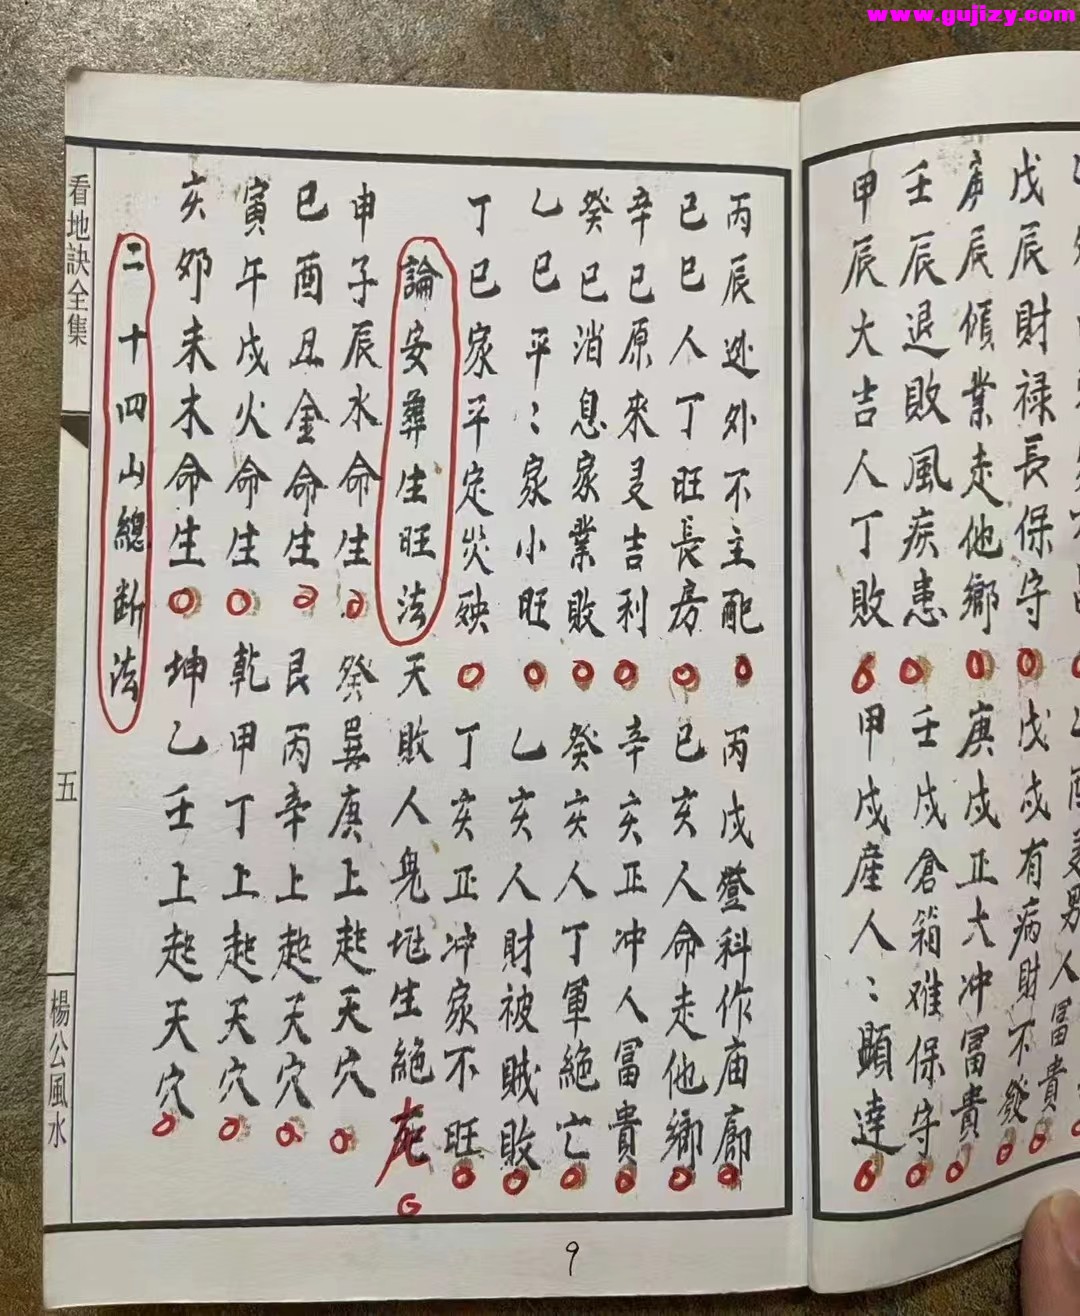 www.gujizy.com
戊辰財禄長保守 戊戌有病財不發
庚辰傾業走他鄉 庚戌正大冲富貴
壬辰退敗風疾患 壬戌倉箱难保守
甲辰大吉人丁敗 甲戌産人〻顕達
丙辰逃外不主配 丙戌登科作庙廊
己巳人丁旺長房 己亥人命走他鄉
辛巳原來是吉利 辛亥正冲人富貴
癸巳消息家業敗 癸亥人丁軍絶亡
乙巳平〻家小旺 乙亥人財被賊敗
丁巳家平定災殃 丁亥正冲家不旺
論安葬生旺法 天敗人鬼地生絶死
申子辰水命生 癸巽庚上起天穴
巳酉丑金命生 艮丙辛上起天穴
寅午戌火命生 乾甲丁上起天穴
亥卯未木命生 坤乙壬上起天穴
二十四山總断法
看地訣全集
五
楊公風水
9